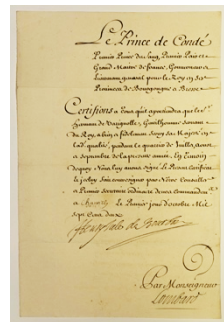 Le Prince de Condé
Premier Prince du Sang, Premier Pair et
Grand Maistre de france, Gouverneur et
Lieutenant general pour le Roy en ses
Provinces de Bourgogne et Bresse
Certifions a tous qu'il appartiendra que le
de Vauguille de Guilhomme Servant
du Roy, a bien et fidelement Servy Sa Majesté en
lad. qualité, pendant le quartier de Juillet, Aoust
et Septembre de la presente année, En temoin
dequoy Nous luy avons signé le Present Certificat
et iceluy fait contresigner par Nôtre Conseiller
et Premier Secretaire ordinaire de nos commandemens
a Chantilly Le Premier jour d'octobre Mil
sept Cent deux
Henry Jules de Bourbon
Par Monseigneur
Lombart